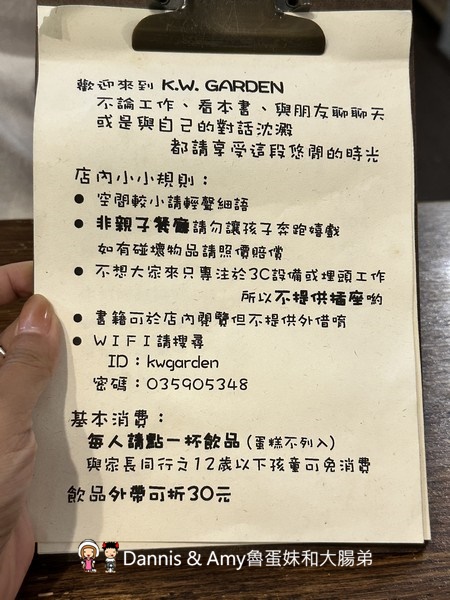 歡迎來到 K.W. GARDEN
不論工作、看本書、與朋友聊聊天
或是與自己的對話沈澱
都請享受這段悠閒的時光
店內小小規則：
● 空間較小請輕聲細語
● 非親子餐廳請勿讓孩子奔跑嬉戲
如有碰壞物品請照價賠償
● 不想大家來只專注於3C設備或埋頭工作
所以不提供插座喲
● 書籍可於店內閱覽但不提供外借唷
● WIFI請搜尋
ID：kwgarden
密碼：035905348
基本消費：
每人請點一杯飲品（蛋糕不列入）
與家長同行之12歲以下孩童可免消費
飲品外帶可折30元
Dannis & Amy魯蛋妹和大腸弟